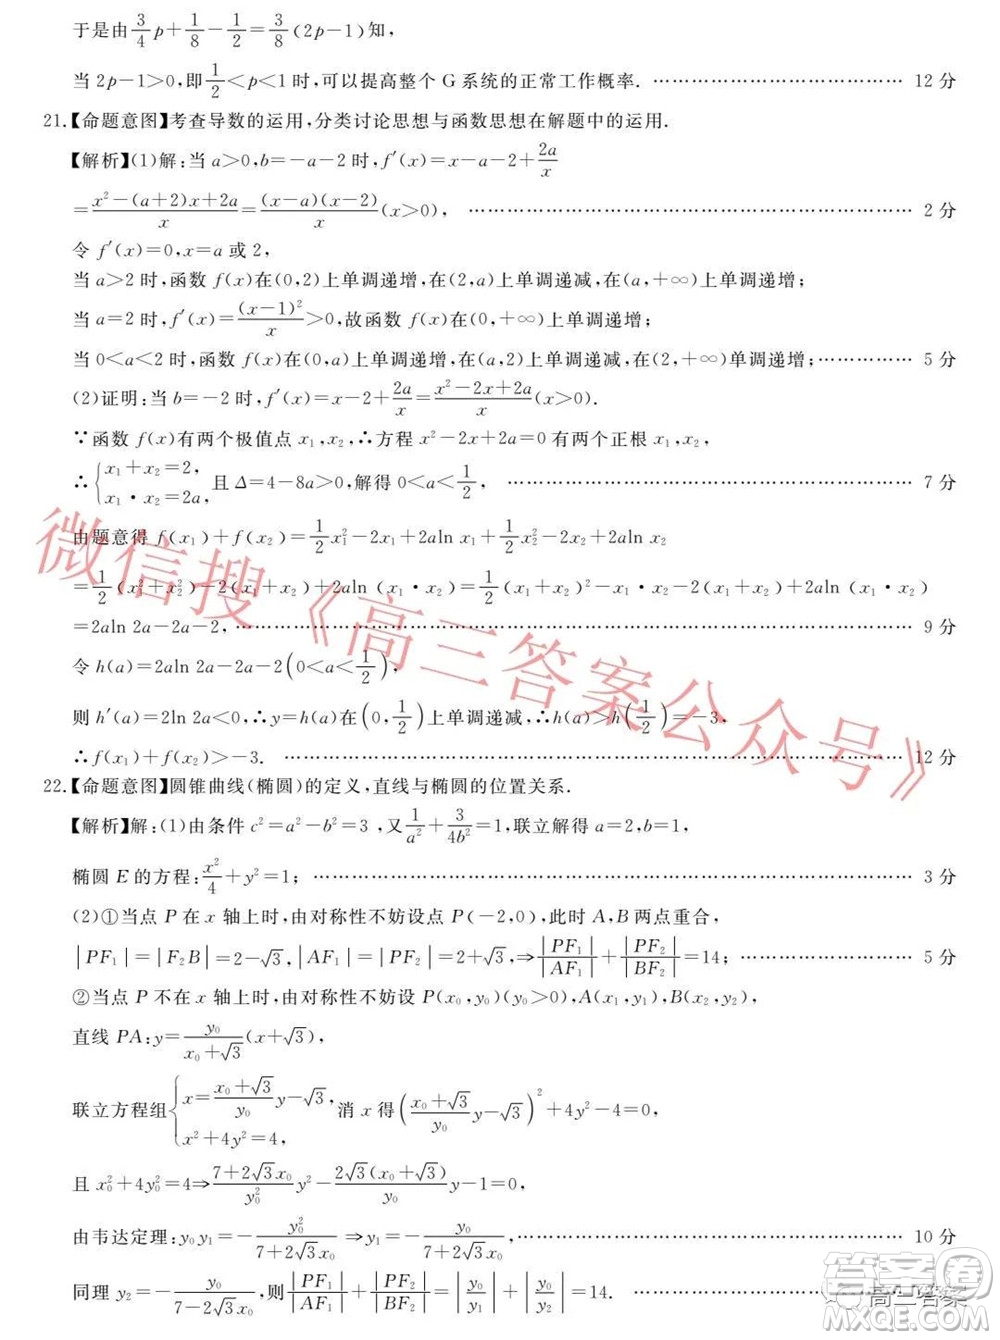 于是由3/4 p+1/8-1/2=3/8(2p-1)知,
当 2p-1>0,即1/2<p<1时,可以提高整个 G 系统的正常工作概率. …………………………………… 12 分
21.【命题意图】考查导数的运用,分类讨论思想与函数思想在解题中的运用.
【解析】(1)解:当 a>0,b=-a-2 时,f′(x)=x-a-2+2a/x
=(x²-(a+2)x+2a)/x=((x-a)(x-2))/x(x>0), …………………………………… 2 分
令 f′(x)=0,x=a 或 2,
当 a>2 时,函数 f(x)在(0,2)上单调递增,在(2,a)上单调递减,在(a,+∞)上单调递增;
当 a=2 时,f′(x)=(x-1)²/x>0,故函数 f(x)在(0,+∞)上单调递增;
当 0<a<2 时,函数 f(x)在(0,a)上单调递增,在(a,2)上单调递减,在(2,+∞)单调递增;…………… 5 分
(2)证明:当 b=-2 时,f′(x)=x-2+2a/x=(x²-2x+2a)/x(x>0).
∵函数 f(x)有两个极值点 x₁,x₂,∴方程 x²-2x+2a=0 有两个正根 x₁,x₂,
∴{x₁+x₂=2, x₁·x₂=2a, 且 Δ=4-8a>0,解得 0<a<1/2, …………………………………… 7 分
由题意得 f(x₁)+f(x₂)=1/2 x₁²-2x₁+2aln x₁+1/2 x₂²-2x₂+2aln x₂
=1/2(x₁²+x₂²)-2(x₁+x₂)+2aln (x₁·x₂)=1/2(x₁+x₂)²-x₁x₂-2(x₁+x₂)+2aln (x₁·x₂)
=2aln 2a-2a-2, …………………………………… 9 分
令 h(a)=2aln 2a-2a-2(0<a<1/2),
则 h′(a)=2ln 2a<0,∴y=h(a)在(0,1/2)上单调递减,∴h(a)>h(1/2)=-3,
∴f(x₁)+f(x₂)>-3. …………………………………… 12 分
22.【命题意图】圆锥曲线(椭圆)的定义,直线与椭圆的位置关系.
【解析】解:(1)由条件 c²=a²-b²=3 ,又1/a²+3/4b²=1,联立解得 a=2,b=1,
椭圆 E 的方程:x²/4+y²=1; …………………………………… 3 分
(2)①当点 P 在 x 轴上时,由对称性不妨设点 P(-2,0),此时 A,B 两点重合,
|PF₁|=|F₂B|=2-√3,|AF₁|=|PF₂|=2+√3,⇒|PF₁|/|AF₁|+|PF₂|/|BF₂|=14; …………………… 5 分
②当点 P 不在 x 轴上时,由对称性不妨设 P(x₀,y₀)(y₀>0),A(x₁,y₁),B(x₂,y₂),
直线 PA:y=y₀/(x₀+√3)(x+√3),
联立方程组{x=(x₀+√3)/y₀ y-√3, x²+4y²=4, 消 x 得((x₀+√3)/y₀ y-√3)²+4y²-4=0,
且 x₀²+4y₀²=4⇒(7+2√3x₀)/y₀² y²-(2√3(x₀+√3))/y₀ y-1=0,
由韦达定理:y₀y₁=-y₀²/(7+2√3x₀)⇒y₁=-y₀/(7+2√3x₀), …………………………………… 10 分
同理 y₂=-y₀/(7-2√3x₀),则|PF₁|/|AF₁|+|PF₂|/|BF₂|=|y₀/y₁|+|y₀/y₂|=14. ……………………
微信搜《高三答案公众号》
答案圈
高三答案
MXQE.COM